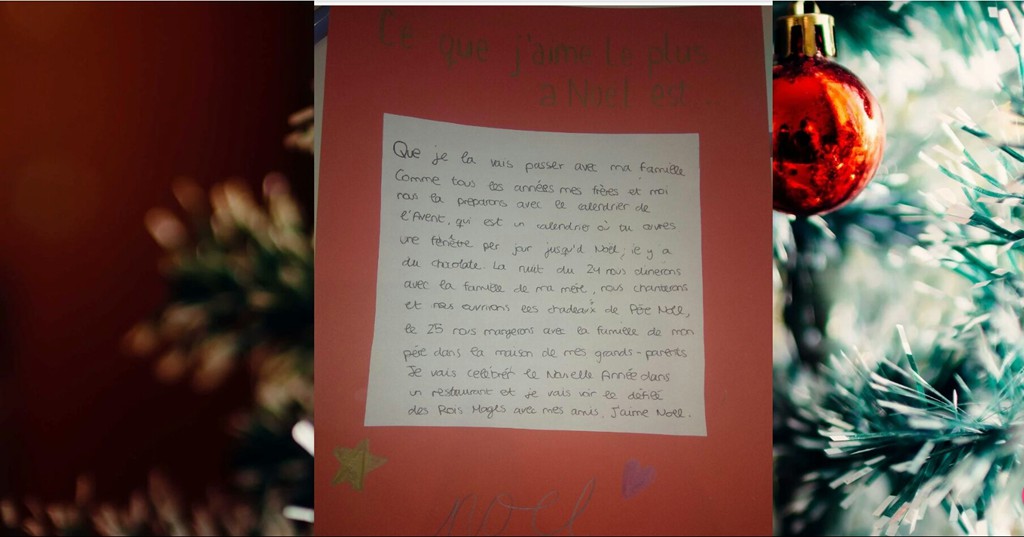 Ce que j'aime le plus
a Noël est...
Que je la vais passer avec ma famille
Comme tous les années mes frères et moi
nous la préparons avec le calendrier de
l'Avent, qui est un calendrier où tu ouvres
une fenêtre per jour jusqu'à Noël, ie y a
du chocolate. La nuit du 24 nous dinerons
avec la famille de ma mère, nous chanterons
et nous ouvrions les chadeaux de Père Noel,
le 25 nous mangerons avec la famille de mon
père dans la maison de mes grands-parents
Je vais celébrer le Nouvelle Année dans
un restaurant et je vais voir le défilé
des Rois Mages avec mes amis. J'aime Noel.
Noel